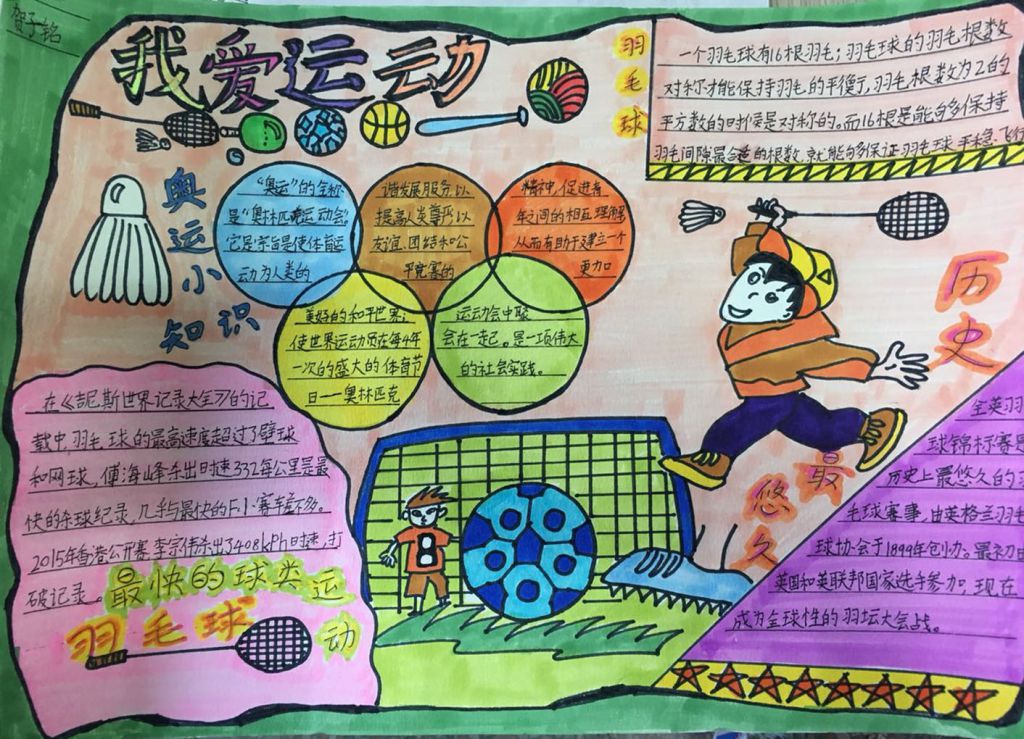 贺子铭
我爱运动
羽毛球
一个羽毛球有16根羽毛；羽毛球的羽毛根数
对称才能保持羽毛的平衡了，羽毛根数为2的
平方数的时候是对称的。而16根是能够多保持
羽毛间隙最合适的根数，就能够多保证羽毛球平稳飞行
奥运小知识
“奥运”的全称
是“奥林匹克运动会”
它是宗旨是使体育运
动为人类的
谐发展服务，以
提高人类尊严；以
友谊、团结和公
平竞赛的
精神，促进青
年之间的相互理解
从而有助于建立一个
更加
美好的和平世界；
使世界运动员在每4年
一次的盛大的体育节
日——奥林匹克
运动会中聚
会在一起。是一项伟大
的社会实践。
在《吉尼斯世界记录大全》的记
载中，羽毛球的最高速度超过了壁球
和网球，傅海峰杀出时速332每公里是最
快的杀球纪录，几乎与最快的F.1.赛车差不多。
2015年香港公开赛，李宗伟杀出了408kPh时速，打
破记录。
最快的球类运动
羽毛球
8
历史最悠久
全英羽
球锦标赛是
历史上最悠久的
毛球赛事，由英格兰羽毛
球协会于1899年创办。最初由
英国和英联邦国家选手参加，现在
成为全球性的羽坛大会战。